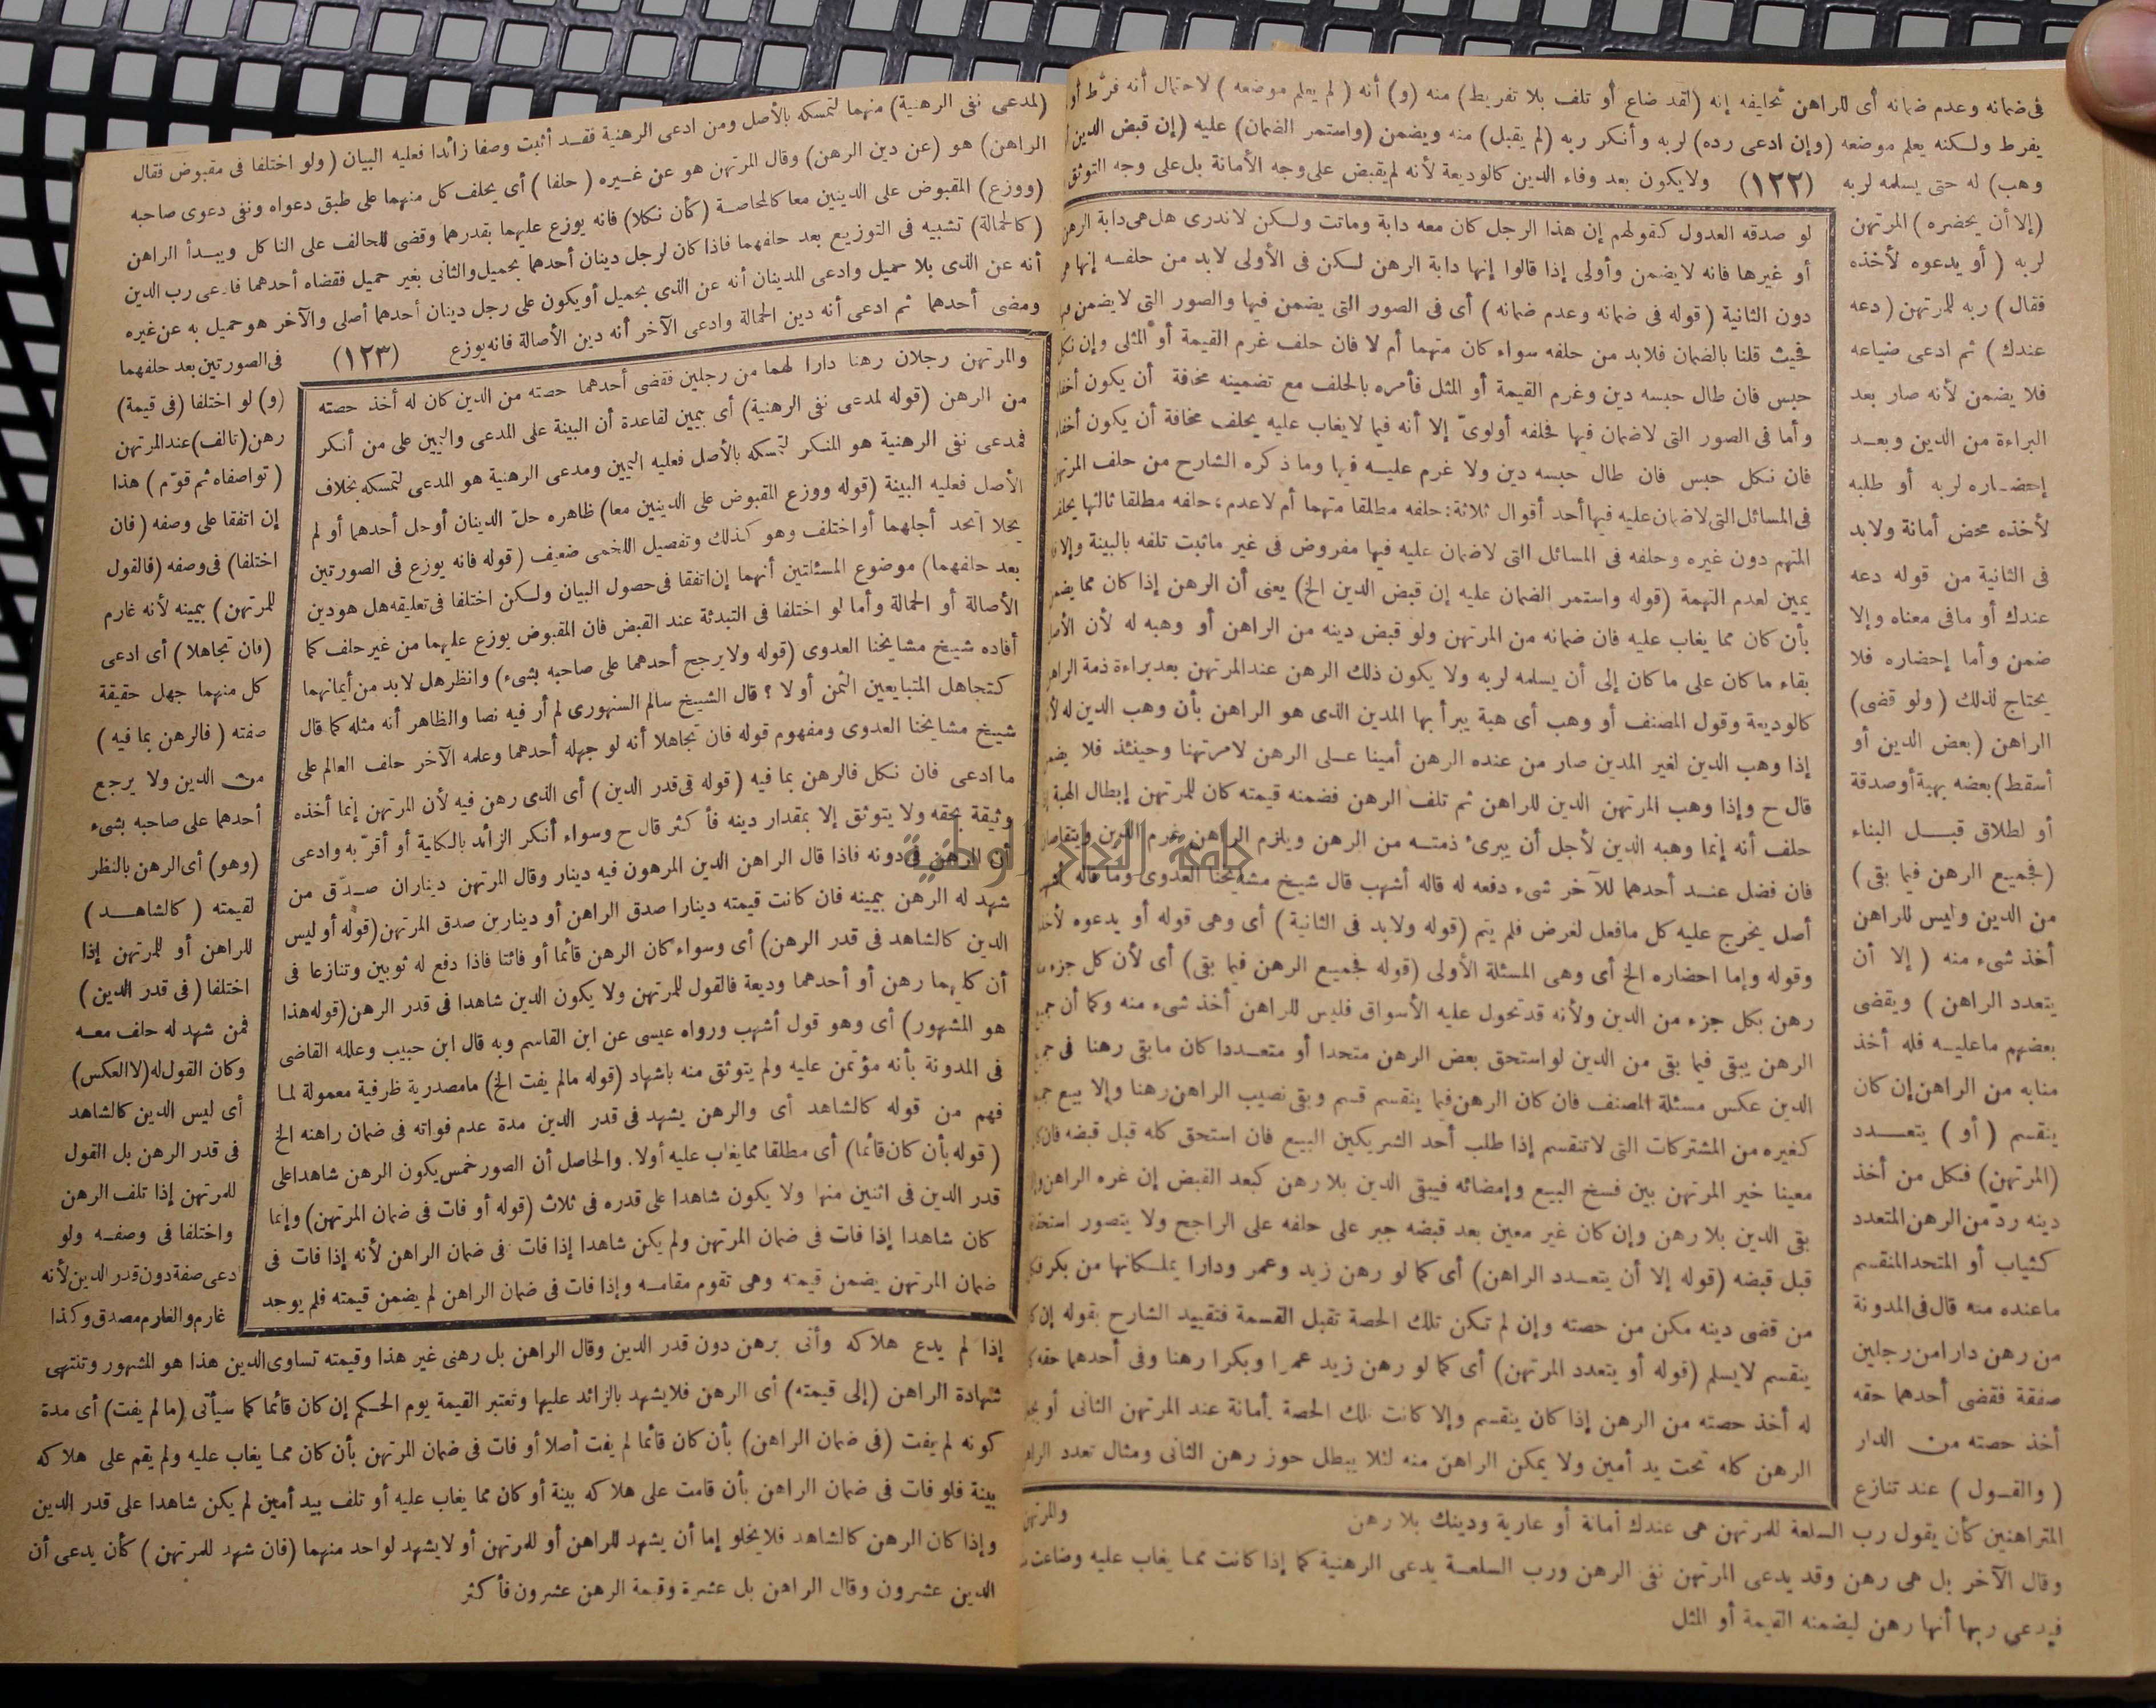 فى ضمانه وعدم ضمانه أى للراهن تحليفه إنه (لقد ضاع أو تلف بلا تفريط) منه (و) أنه ( لم يعلم موضعه ) لاحتمال أنه فرّط أو
يفرط ولكنه يعلم موضعه (وإن ادعى رده) لربه وأنكر ربه (لم يقبل) منه ويضمن (واستمر الضمان) عليه (إن قبض الدين
وهب) له حتى يسلمه لربه (١٢٢) ولا يكون بعد وفاء الدين كالوديعة لأنه لم يقبض على وجه الأمانة بل على وجه التوثق
(إلا أن يحضره) المرتهن
لربه ( أو يدعوه لأخذه
فقال ) ربه للمرتهن ( دعه
عندك ) ثم ادعى ضياعه
فلا يضمن لأنه صار بعد
البراءة من الدين وبعد
إحضاره لربه أو طلبه
لأخذه محض أمانة ولا بد
فى الثانية من قوله دعه
عندك أو ما فى معناه وإلا
ضمن وأما إحضاره فلا
يحتاج لذلك ( ولو قضى)
الراهن (بعض الدين أو
أسقط) بعضه بهبة أو صدقة
أو لطلاق قبل البناء
(فجميع الرهن فيما بقى )
من الدين وليس للراهن
أخذ شىء منه ( إلا أن
يتعدد الراهن ) ويقضى
بعضهم ما عليه فله أخذ
منابه من الراهن إن كان
ينقسم ( أو ) يتعدد
(المرتهن) فكل من أخذ
دينه ردّ من الرهن المتعدد
كثياب أو المتحد المنقسم
ما عنده منه قال فى المدونة
من رهن دارا من رجلين
صفقة فقضى أحدهما حقه
أخذ حصته من الدار
( والقول ) عند تنازع
المتراهنين كأن يقول رب السلعة للمرتهن هى عندك أمانة أو عارية ودينك بلا رهن
وقال الآخر بل هى رهن وقد يدعى المرتهن نفى الرهن ورب السلعة يدعى الرهنية كما إذا كانت مما يغاب عليه وضاعت
فيدعى ربها أنها رهن ليضمنه القيمة أو المثل
لو صدقه العدول كقولهم إن هذا الرجل كان معه دابة وماتت ولكن لا ندرى هل هى دابة الرهن
أو غيرها فانه لا يضمن وأولى إذا قالوا إنها دابة الرهن لكن فى الأولى لا بد من حلفه إنها
دون الثانية ( قوله فى ضمانه وعدم ضمانه ) أى فى الصور التى يضمن فيها والصور التى لا يضمن
فحيث قلنا بالضمان فلا بد من حلفه سواء كان متهما أم لا فان حلف غرم القيمة أو المثلى وإن نكل
حبس فان طال حبسه دين وغرم القيمة أو المثل فأمره بالحلف مع تضمينه مخافة أن يكون
وأما فى الصور التى لا ضمان فيها فحلفه أولوىّ إلا أنه فيما لا يغاب عليه يحلف مخافة أن يكون
فان نكل حبس فان طال حبسه دين ولا غرم عليه فيها وما ذكره الشارح من حلف المرتهن
فى المسائل التى لا ضمان عليه فيها أحد أقوال ثلاثة : حلفه مطلقا متهما أم لا عدم : حلفه مطلقا ثالثها يحلف
المتهم دون غيره وحلفه فى المسائل التى لا ضمان عليه فيها مفروض فى غير ما ثبت تلفه بالبينة وإلا
يمين لعدم التهمة (قوله واستمر الضمان عليه إن قبض الدين الخ) يعنى أن الرهن إذا كان مما
بأن كان مما يغاب عليه فان ضمانه من المرتهن ولو قبض دينه من الراهن أو وهبه له لأن
بقاء ما كان على ما كان إلى أن يسلمه لربه ولا يكون ذلك الرهن عند المرتهن بعد براءة ذمة الراهن
كالوديعة وقول المصنف أو وهب أى هبة يبرأ بها المدين الذى هو الراهن بأن وهب الدين له
إذا وهب الدين لغير المدين صار من عنده الرهن أمينا على الرهن لا مرتهنا وحينئذ فلا
قال ح وإذا وهب المرتهن الدين للراهن ثم تلف الرهن فضمنه قيمته كان للمرتهن إبطال الهبة
حلف أنه إنما وهبه الدين لأجل أن يبرئ ذمته من الرهن ويلزم الراهن غرم الدين ويتقاصان
فان فضل عند أحدهما للآخر شىء دفعه له قاله أشهب قال شيخ مشايخنا العدوى وما قاله
أصل يخرج عليه كل ما فعل لغرض فلم يتم (قوله ولا بد فى الثانية ) أى وهى قوله أو يدعوه
وقوله وإما احضاره الخ أى وهى المسئلة الأولى (قوله فجميع الرهن فيما بقى) أى لأن كل جزء
رهن بكل جزء من الدين ولأنه قد تحول عليه الأسواق فليس للراهن أخذ شىء منه وكما أن
الرهن يبقى فيما بقى من الدين لو استحق بعض الرهن متحدا أو متعددا كان ما بقى رهنا فى
الدين عكس مسئلة المصنف فان كان الرهن فيما ينقسم قسم وبقى نصيب الراهن رهنا وإلا بيع
كغيره من المشتركات التى لا تنقسم إذا طلب أحد الشريكين البيع فان استحق كله قبل قبضه
معينا خير المرتهن بين فسخ البيع وإمضائه فيبقى الدين بلا رهن كبعد القبض إن غره الراهن
بقى الدين بلا رهن وإن كان غير معين بعد قبضه جبر على حلفه على الراجح ولا يتصور
قبل قبضه (قوله إلا أن يتعدد الراهن) أى كما لو رهن زيد وعمر ودارا يملكانها من بكر
من قضى دينه مكن من حصته وإن لم تكن تلك الحصة تقبل القسمة فتقييد الشارح بقوله
ينقسم لا يسلم (قوله أو يتعدد المرتهن) أى كما لو رهن زيد عمرا وبكرا رهنا وفى أحدهما
له أخذ حصته من الرهن إذا كان ينقسم وإلا كانت تلك الحصة أمانة عند المرتهن الثانى
الرهن كله تحت يد أمين ولا يمكن الراهن منه لئلا يبطل حوز رهن الثانى ومثال تعدد
(لمدعى نفى الرهنية) منهما لتمسكه بالأصل ومن ادعى الرهنية فقد أثبت وصفا زائدا فعليه البيان (ولو اختلفا فى مقبوض فقال
الراهن) هو (عن دين الرهن) وقال المرتهن هو عن غيره ( حلفا ) أى يحلف كل منهما على طبق دعواه ونفى دعوى صاحبه
(ووزع) المقبوض على الدينين معا كالمحاصة (كأن نكلا) فانه يوزع عليهما بقدرهما وقضى للحالف على الناكل ويبدأ الراهن
(كالحمالة) تشبيه فى التوزيع بعد حلفهما فاذا كان لرجل دينان أحدهما بحميل والثانى بغير حميل فقضاه أحدهما فادعى رب الدين
أنه عن الذى بلا حميل وادعى المدينان أنه عن الذى بحميل أو يكون على رجل دينان أحدهما أصلى والآخر هو حميل به عن غيره
ومضى أحدهما ثم ادعى أنه دين الحمالة وادعى الآخر أنه دين الأصالة فانه يوزع (١٢٣) فى الصورتين بعد حلفهما
(و) لو اختلفا (فى قيمة)
رهن (تالف) عند المرتهن
( تواصفاه ثم قوّم ) هذا
إن اتفقا على وصفه ( فان
اختلفا) فى وصفه (فالقول
للمرتهن) بيمينه لأنه غارم
(فان تجاهلا ) أى ادعى
كل منهما جهل حقيقة
صفته ( فالرهن بما فيه )
من الدين ولا يرجع
أحدهما على صاحبه بشىء
(وهو) أى الرهن بالنظر
لقيمته ( كالشاهد )
للراهن أو للمرتهن إذا
اختلفا ( فى قدر الدين )
فمن شهد له حلف معه
وكان القول له (لا العكس)
أى ليس الدين كالشاهد
فى قدر الرهن بل القول
للمرتهن إذا تلف الرهن
واختلفا فى وصفه ولو
ادعى صفة دون قدر الدين لأنه
غارم والغارم مصدق وكذا
إذا لم يدع هلاكه وأتى برهن دون قدر الدين وقال الراهن بل رهنى غير هذا وقيمته تساوى الدين هذا هو المشهور وتنتهى
شهادة الراهن (إلى قيمته) أى الرهن فلا يشهد بالزائد عليها وتعتبر القيمة يوم الحكم إن كان قائما كما سيأتى (ما لم يفت) أى مدة
كونه لم يفت (فى ضمان الراهن) بأن كان قائما لم يفت أصلا أو فات فى ضمان المرتهن بأن كان مما يغاب عليه ولم يقم على هلاكه
بينة فلو فات فى ضمان الراهن بأن قامت على هلاكه بينة أو كان مما يغاب عليه أو تلف بيد أمين لم يكن شاهدا على قدر الدين
وإذا كان الرهن كالشاهد فلا يخلو إما أن يشهد للراهن أو للمرتهن أو لا يشهد لواحد منهما (فان شهد للمرتهن ) كأن يدعى أن
الدين عشرون وقال الراهن بل عشرة وقيمة الرهن عشرون فأكثر
والمرتهن رجلان رهنا دارا لهما من رجلين فقضى أحدهما حصته من الدين كان له أخذ حصته
من الرهن (قوله لمدعى نفى الرهنية) أى بيمين لقاعدة أن البينة على المدعى واليمين على من أنكر
فمدعى نفى الرهنية هو المنكر لتمسكه بالأصل فعليه اليمين ومدعى الرهنية هو المدعى لتمسكه بخلاف
الأصل فعليه البينة (قوله ووزع المقبوض على الدينين معا) ظاهره حلّ الدينان أو حل أحدهما أو لم
يحلا اتحد أجلهما أو اختلف وهو كذلك وتفصيل اللخمى ضعيف ( قوله فانه يوزع فى الصورتين
بعد حلفهما) موضوع المسئلتين أنهما إن اتفقا فى حصول البيان ولكن اختلفا فى تعليقه هل هو دين
الأصالة أو الحمالة وأما لو اختلفا فى التبدئة عند القبض فان المقبوض يوزع عليهما من غير حلف كما
أفاده شيخ مشايخنا العدوى (قوله ولا يرجح أحدهما على صاحبه بشىء) وانظر هل لا بد من أيمانهما
كتجاهل المتبايعين الثمن أو لا ؟ قال الشيخ سالم السنهورى لم أر فيه نصا والظاهر أنه مثله كما قال
شيخ مشايخنا العدوى ومفهوم قوله فان تجاهلا أنه لو جهله أحدهما وعلمه الآخر حلف العالم على
ما ادعى فان نكل فالرهن بما فيه ( قوله فى قدر الدين ) أى الذى رهن فيه لأن المرتهن إنما أخذه
وثيقة بحقه ولا يتوثق إلا بمقدار دينه فأكثر قال ح وسواء أنكر الزائد بالكلية أو أقرّ به وادعى
أن الرهن فى دونه فاذا قال الراهن الدين المرهون فيه دينار وقال المرتهن ديناران صدّق من
شهد له الرهن بيمينه فان كانت قيمته دينارا صدق الراهن أو دينارين صدق المرتهن (قوله أو ليس
الدين كالشاهد فى قدر الرهن) أى وسواء كان الرهن قائما أو فائتا فاذا دفع له ثوبين وتنازعا فى
أن كليهما رهن أو أحدهما وديعة فالقول للمرتهن ولا يكون الدين شاهدا فى قدر الرهن (قوله هذا
هو المشهور) أى وهو قول أشهب ورواه عيسى عن ابن القاسم وبه قال ابن حبيب وعلله القاضى
فى المدونة بأنه مؤتمن عليه ولم يتوثق منه باشهاد (قوله ما لم يفت الخ) ما مصدرية ظرفية معمولة لما
فهم من قوله كالشاهد أى والرهن يشهد فى قدر الدين مدة عدم فواته فى ضمان راهنه الخ
( قوله بأن كان قائما) أى مطلقا مما يغاب عليه أولا. والحاصل أن الصور خمس يكون الرهن شاهدا على
قدر الدين فى اثنين منها ولا يكون شاهدا على قدره فى ثلاث (قوله أو فات فى ضمان المرتهن) وإنما
كان شاهدا إذا فات فى ضمان المرتهن ولم يكن شاهدا إذا فات فى ضمان الراهن لأنه إذا فات فى
ضمان المرتهن يضمن قيمته وهى تقوم مقامه وإذا فات فى ضمان الراهن لم يضمن قيمته فلم يوجد